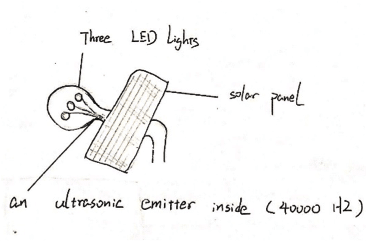 Three LED Lights
solar panel
an ultrasonic emitter inside (40000 Hz)